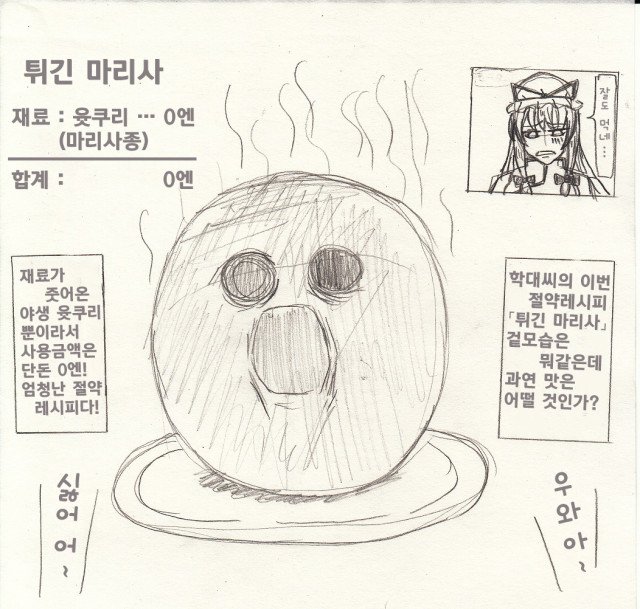 튀긴 마리사
재료 : 윳쿠리 … 0엔
(마리사종)
합계 : 0엔
잘도 먹네…
재료가
줏어온
야생 윳쿠리
뿐이라서
사용금액은
단돈 0엔!
엄청난 절약
레시피다!
학대씨의 이번
절약레시피
「튀긴 마리사」
겉모습은
뭐같은데
과연 맛은
어떨 것인가?
싫어어~
우와아~